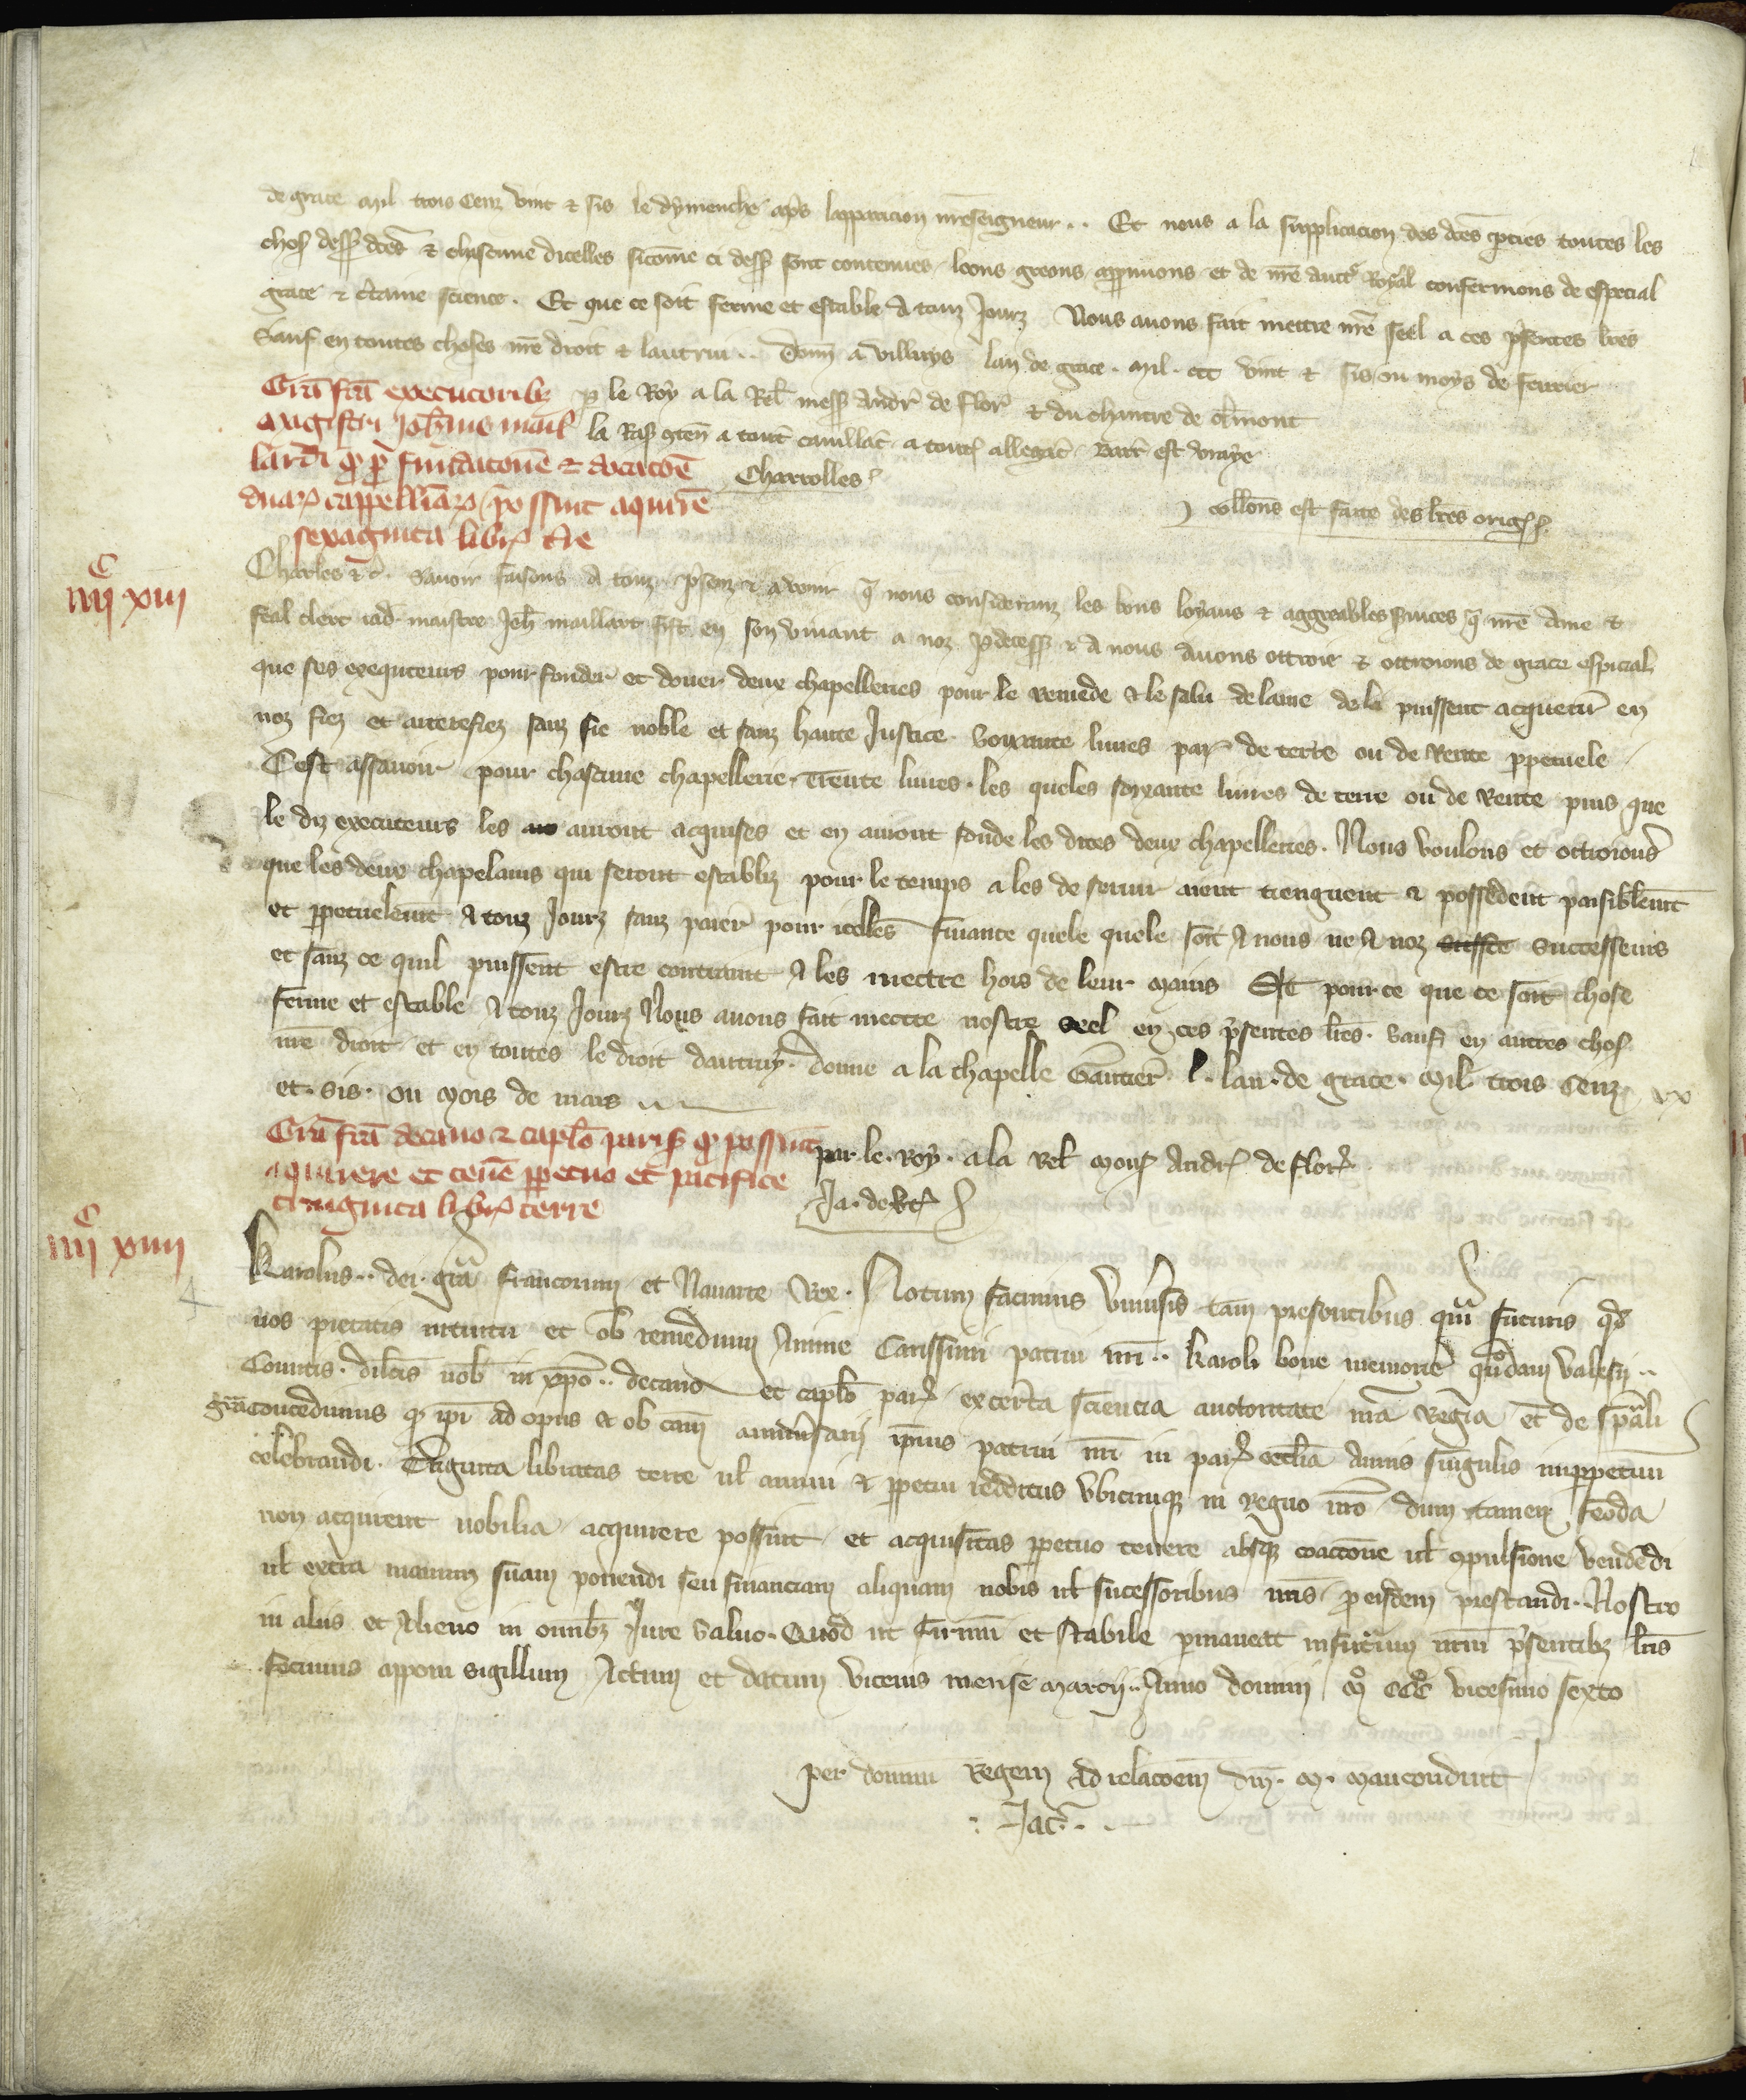 de grace mil trois cenz vint & sis le dymenche apres lapparicion nreseigneur .. Et nous a la supplicacion des dces pties toutes les
chos dess dces & chascune dicelles sicome ci dess sont contenues loons greons appruuons et de nre auct Royal confermons de especial
grace & ctaine science . Et que ce soit ferme et estable a touz Jourz Nous auons fait mettre nre seel a ces psentes lres
Sauf en toutes choses nre droit & lautrui .. Donn a Villuys lan de grace . mil . ccc vint & sis ou moys de feurier
p le Roy a la Rel mess Andr de Flor & du chantre de clmont
la Ras gten a tout cauillac a tout allegac Bart est vraye
Charrolles
collons est faite des lres orig
Gra fca executoribz
magistri Johnis mail
lardi q p fundacone & dotacoe
duar cappelliar possint aquire
sexaginta libr tre
C
iiij xiii
Charles &c . Sauoir faisons a touz psenz & auenir q nous consideranz les bons loyaus & aggreables seruices q nre ame &
feal clerc iad maistre Jeh maillart fist en son viuant a noz pdecess & a nous auons ottroie & ottroions de grace especial
que ses exequteurs pour fonder et douer deux chapelleries pour le remede & le salu de lame de li puissent acquerir en
noz fiez et arrerefiez sanz fie noble et sanz haute Justice Soixante liures par de terre ou de Rente ppetuele
Cest assauoir pour chascune chapellerie Trente liures . les queles soixante liures de terre ou de Rente puis que
le diz executeurs les auront acquises et en auront fonde les dites deux chapelleries . Nous voulons et ottroions
que les deux chapelains qui seront establiz pour le temps a les deseruir aient tiengnent & possedent paisiblemt
et ppetuelemt a touz Jourz sanz paier pour icelles finance quele quele soit a nous ne a noz successeurs
et sanz ce quil puissent estre contraint a les mettre hors de leur mains Et pource que ce soit chose
ferme et estable a touz Jourz Nous auons fait mettre nostre seel en ces psentes lres . Sauf en autres chos
nre droit et en toutes le droit dautruy . donne a la chapelle Gautier l . lan . de grace . mil trois cenz xx
et . sis . ou mois de mars
par . le . roy . a la Rel mons Andr de flor
Ja . de
Gra fca decano & caplo paris q possint
aquirere et tene ppetuo et pacifice
triginta libr terre
C
iiij xiiii
Karolus .. dei . gra Francorum et Nauarre Rex . Notum facimus vniusis tam presentibus qua futuris qd
nos pietatis intuitu et ob remedium Anime Carissimi patrui nri .. Karoli bone memorie quodam Valesii ..
Comitis . dilcis nob in xpo .. decano et caplo paris ex certa sciencia auctoritate nra Regia et de spali
gra concedimus q ipi ad opus et ob cam anniusarii ipius patrui nri in paris ecclia annis singulis imppetuu
celebrandi . Triginta libratas terre ul annui & ppetui redditus vbicunq in regno nro dum tamen feoda
non acquirent nobilia acquirere possint et acquisitas ppetuo tenere absq coaccone ul gpulsione vendedi
ul extra manum suam ponendi seu financiam aliquam nobis ul successoribus nris pro eisdem prestandi .. Nostro
in aliis et Alieno in omnibz Jure saluo . Quod ut firmu et stabile pmaneat infuturum nrm psentibz lris
fecimus apponi sigillum Actum et datum Vicenis mense Marcii .. Anno domini Mo CCCo vicesimo sexto
per dominu Regem ad relacoem dni . M . Mauconduit
Jac